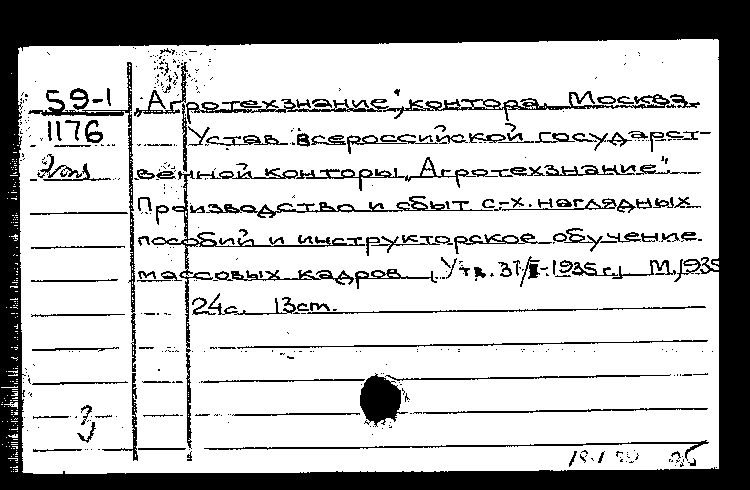 59-1 „Агротехзнание", контора. Москва.
1176 Устав всероссийской государст-
2 экз венной конторы „Агротехзнание".
Производство и сбыт с-х. наглядных
пособий и инструкторское обучение
массовых кадров. [Утв. 31/ -1935 г.] М., 1935
24с. 13см.